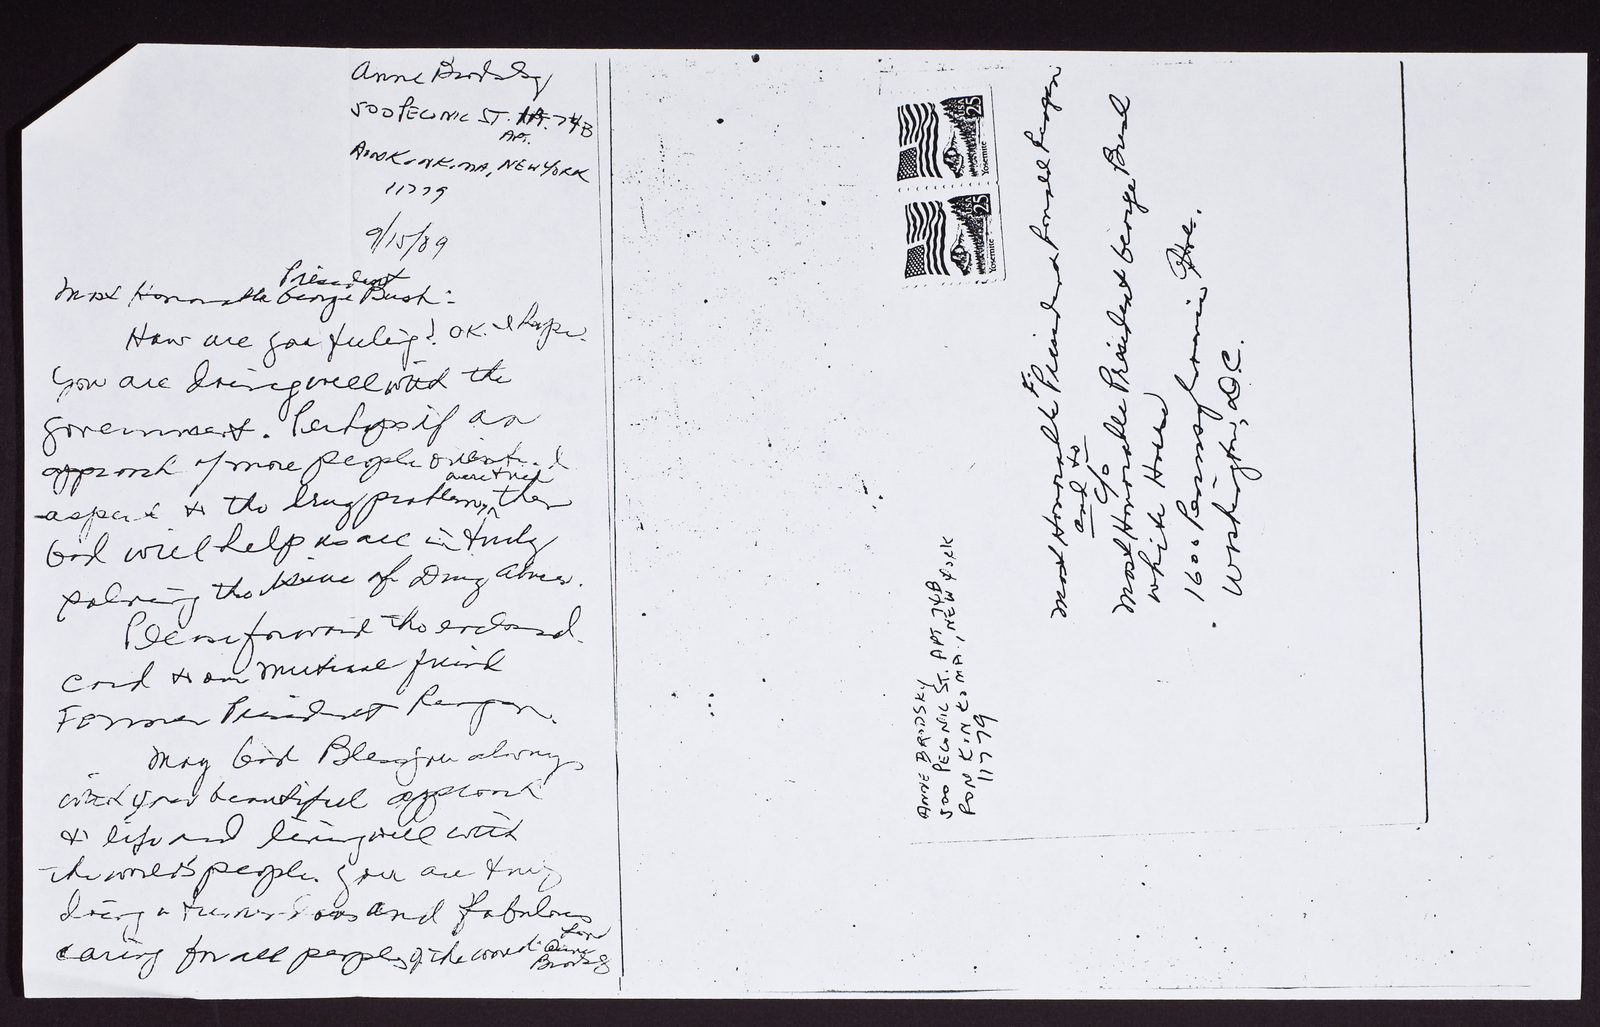 Anne Brodsky
500 PECONIC ST. APT. 74B
APT.
RONKONKOMA, NEW YORK
11779
9/15/89
President
Most Honorable George Bush:
How are you feeling? OK. I hope.
You are doing well with the
government. Perhaps if an
approach of more people oriented
were tried
aspect to the drug problem, then
God will help us all in truly
solving the issue of Drug Abuse.
Please forward the enclosed
card to our mutual friend
Former President Reagan.
May God Bless you always
with your beautiful approach
to life and living well with
the world's people. You are truly
doing a tremendous and fabulous
caring for all people of the world.
Love
Anne
Brodsky
25 USA
Yosemite
25 USA
Yosemite
ANNE BRODSKY
500 PECONIC ST. APT 74B
RONKONKOMA, NEW YORK
11779
Most Honorable F. President Ronald Reagan
and to
c/o
Most Honorable President George Bush
White House
1600 Pennsylvania Ave.
Washington, D.C.